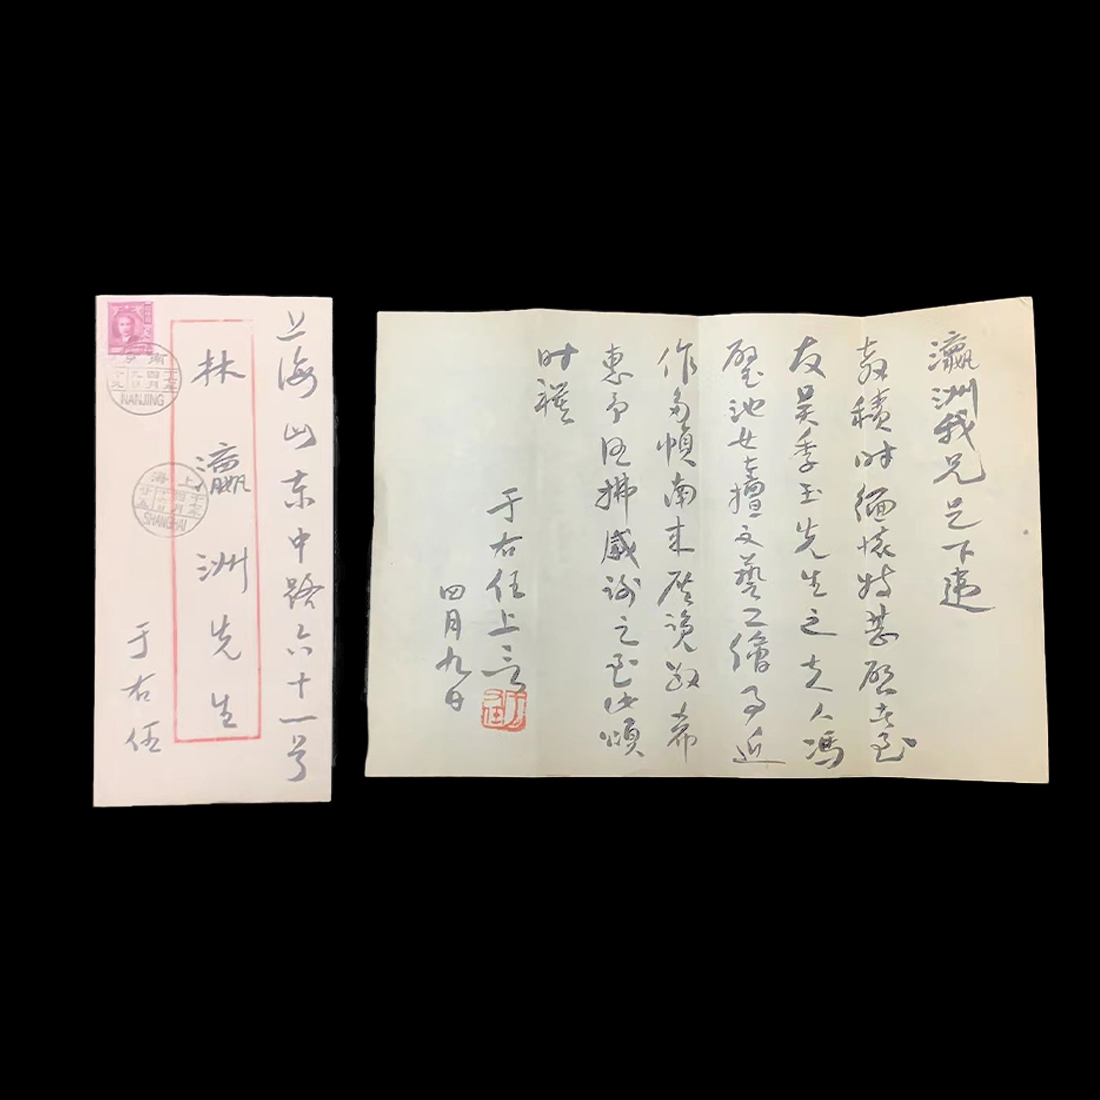 上海山东中路六十一号
林瀛洲先生
于右任
南京
NANJING
上海
SHANGHAI
瀛洲我兄足下违
教积时缅怀特甚启者至
友吴季玉先生之夫人冯
璧池女士擅文艺工绘事近
作多帧南来展览敬希
惠予匡拂感谢之至此颂
时祺
于右任上言
四月九日